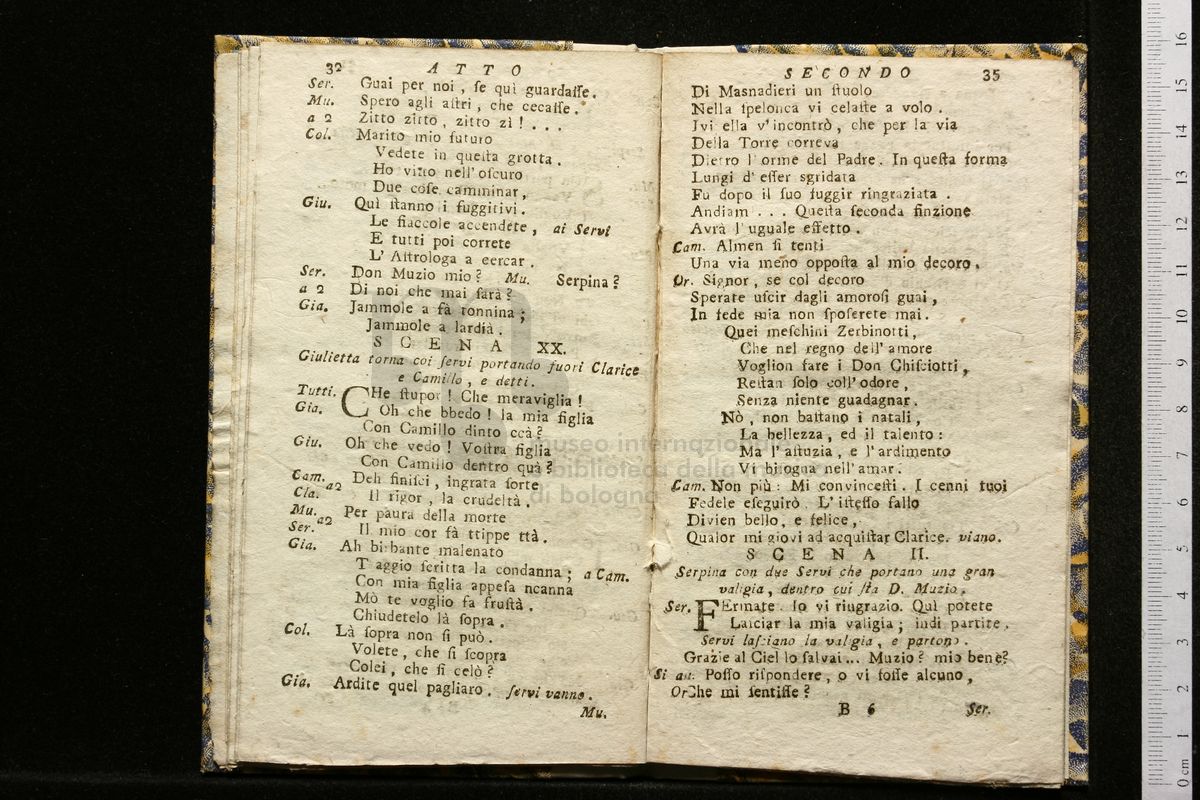 32 ATTO
Ser. Guai per noi, ſe quì guardaſſe.
Mu. Spero agli aſtri, che cecaſſe.
a 2 Zitto zitto, zitto zì! . . .
Col. Marito mio futuro
Vedete in queſta grotta.
Ho viſto nell' oſcuro
Due coſe camminar,
Giu. Quì ſtanno i fuggitivi.
Le fiaccole accendete, ai Servi
E tutti poi correte
L' Aſtrologa a cercar.
Ser. Don Muzio mio? Mu. Serpina?
a 2 Di noi che mai ſarà?
Gia. Jammole a fà tonnina;
Jammole a lardià.
SCENA XX.
Giulietta torna coi ſervi portando fuori Clarice
e Camillo, e detti.
Tutti. CHe ſtupor! Che meraviglia!
Gia. Oh che bbedo! la mia figlia
Con Camillo dinto ccà?
Giu. Oh che vedo! Voſtra figlia
Con Camillo dentro quà?
Cam. a2 Deh finiſci, ingrata ſorte
Cla. Il rigor, la crudeltà.
Mu. a2 Per paura della morte
Ser. Il mio cor fà ttippe ttà.
Gia. Ah birbante malenato
T' aggio ſcritta la condanna; a Cam.
Con mia figlia appeſa ncanna
Mò te voglio fa fruſtà.
Chiudetelo là ſopra.
Col. Là ſopra non ſi può.
Volete, che ſi ſcopra
Colei, che ſi celò?
Gia. Ardite quel pagliaro. ſervi vanno.
Mu.
SECONDO 35
Di Maſnadieri un ſtuolo
Nella ſpelonca vi celaſte a volo.
Ivi ella v' incontrò, che per la via
Della Torre correva
Dietro l' orme del Padre. In queſta forma
Lungi d' eſſer sgridata
Fu dopo il ſuo fuggir ringraziata.
Andiam . . . Queſta ſeconda finzione
Avrà l' uguale effetto.
Cam. Almen ſi tenti
Una via meno oppoſta al mio decoro.
Or. Signor, se col decoro
Sperate uſcir dagli amoroſi guai,
In fede mia non ſpoſerete mai.
Quei meſchini Zerbinotti,
Che nel regno dell' amore
Voglion fare i Don Chiſciotti,
Reſtan ſolo coll' odore,
Senza niente guadagnar.
Nò, non baſtano i natali,
La bellezza, ed il talento:
Ma l' aſtuzia, e l' ardimento
Vi biſogna nell' amar.
Cam. Non più: Mi convinceſti. I cenni tuoi
Fedele eſeguirò. L' iſteſſo fallo
Divien bello, e felice,
Qualor mi giovi ad acquiſtar Clarice. viano.
SCENA II.
Serpina con due Servi che portano una gran
valigia, dentro cui ſta D. Muzio.
Ser. FErmate. Io vi ringrazio. Quì potete
Laſciar la mia valigia; indi partite.
Servi laſciano la valigia, e partono.
Grazie al Ciel lo ſalvai... Muzio? mio bene?
Poſſo riſpondere, o vi foſſe alcuno,
Che mi ſentiſſe?
B 6 Ser.
museo internazionale
e biblioteca della musica
di bologna
16
15
14
13
12
11
10
9
8
7
6
5
4
3
2
1
0 cm